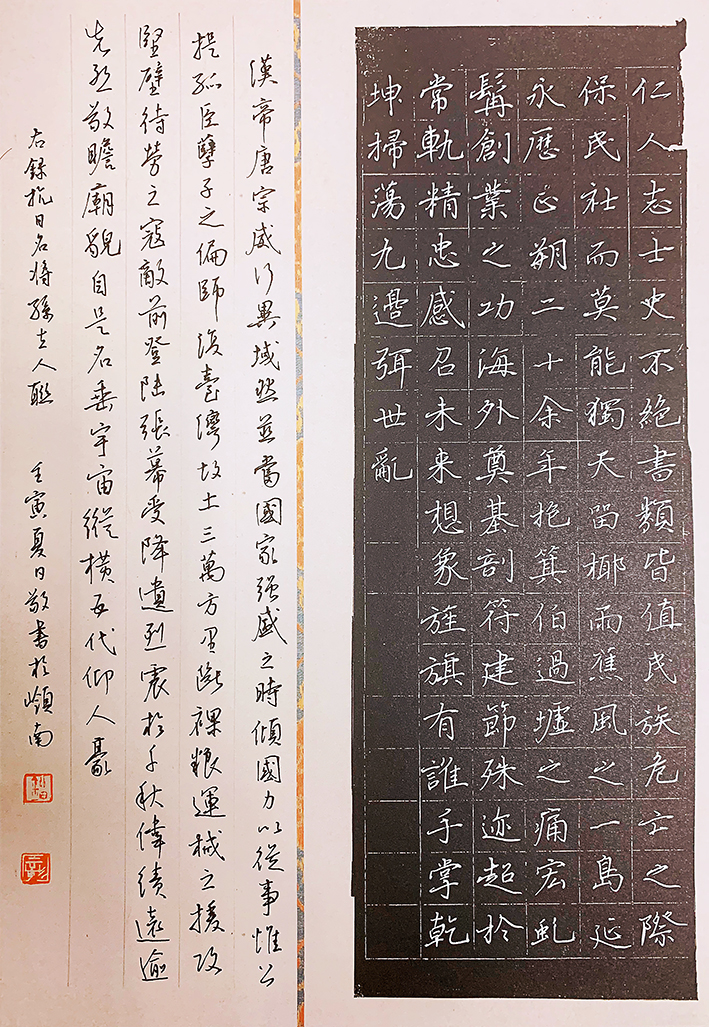 仁人志士史不絕書類皆值民族危亡之際
保民社而莫能獨天留椰雨蕉風之一島延
永歷正朔二十余年抱箕伯過墟之痛宏虬
髯創業之功海外奠基剖符建節殊迹超於
常軌精忠感召未来想象旌旗有誰手掌乾
坤掃蕩九邊弭世亂
漢帝唐宗威行異域然並當國家强盛之時傾國力以從事惟公
提孤臣孽子之偏師復臺灣故土三萬方里斷裸粮運械之援攻
堅壁待勞之寇敵前登陸張幕受降遺烈震於千秋偉績遠逾
先烈敬瞻廟貌自是名垂宇宙縱橫百代仰人豪
右錄抗日名將孫立人聯 壬寅夏日敬書於嶺南